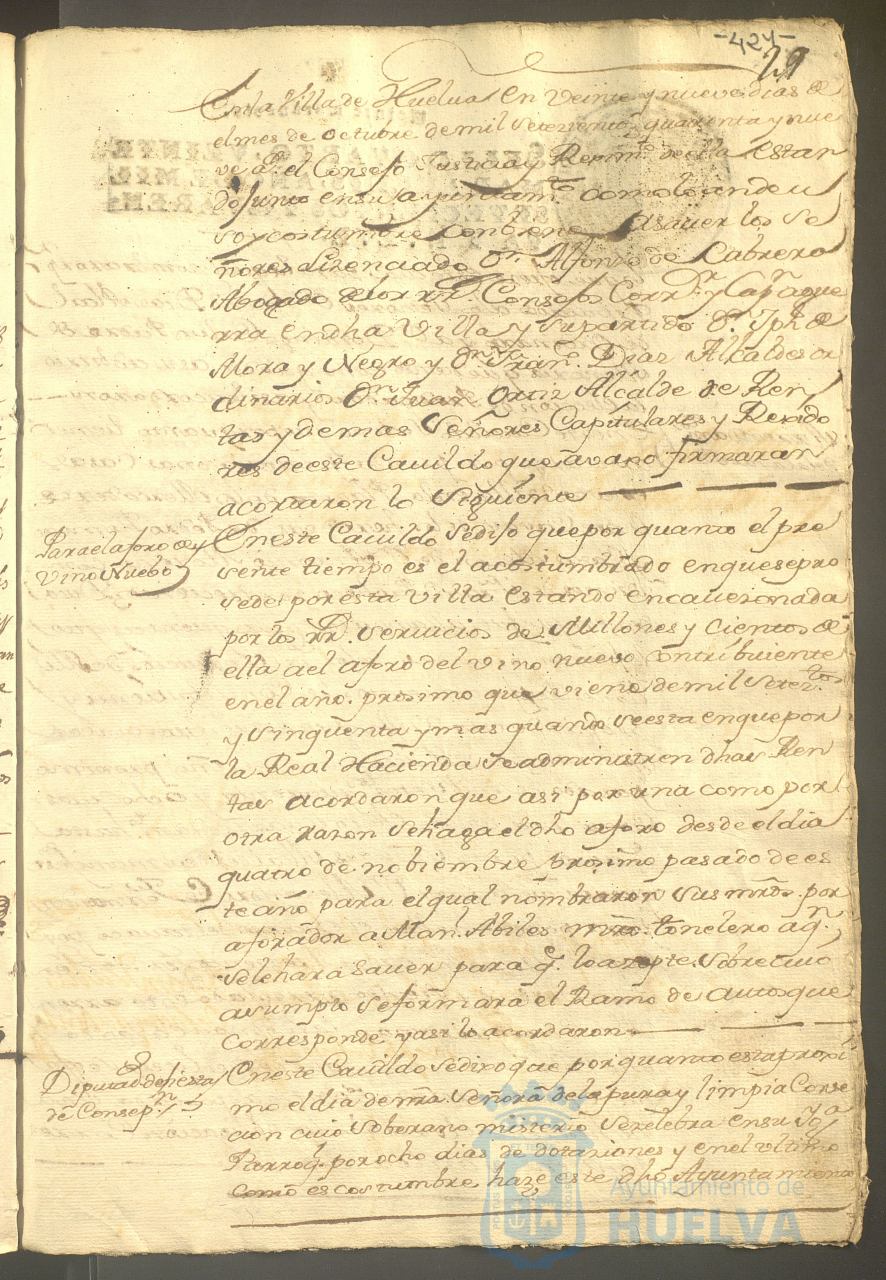 -424-
29
En la Villa de Huelua en Veinte y nueve dias de
el mes de octubre de mil setezientos quarenta y nue
ve as. el Consejo Justicia y Regimto. de ella estan
do junto en su ayuntamto. como lo an de u
so y costumbre combiene a sauer los Se
ñores Lizenciado Dn. Alfonso de Cabrera
Abogado de los rrs. Consejos Corrr. y Capn. a gue
rra en dha Villa y su partido Dn. Jph. de
Mora y Negro y Dn. Fran. Diaz Alcaldes or
dinarios Dn. Juan Ortiz Alcalde de Ren
tas y demas Señores Capitulares y Rexido
res de este Cauildo que auajo firmaran
acordaron lo siguiente
Para el aforo de
Vino Nuebo
En este Cauildo se dijo que por quanto el pre
sente tiempo es el acostumbrado en que se pro
sede por esta Villa estando encauezonada
por los rrs. servicios de Millones y Cientos de
ella a el aforo del vino nuevo contribuiente
en el año proximo que viene de mil setetos.
y sinquenta y mas quando se esta en que por
la Real Hacienda se administren dhas Ren
tas acordaron que asi por una como por
otra razon se haga el dho aforo desde el dia
quatro de nobiembre proximo pasado de es
te año para el qual nombraron sus mrds. por
aforador a Manl. Abiles mro. tonelero a qn.
se le hara sauer para q. lo azepte sobre cuio
asumpto se formara el Ramo de autos que
corresponde y asi lo acordaron
Diputads. de fiesta
de Consepn.
En este Cauildo se dixo que por quanto esta proxi
mo el dia de nra. Señora de la pura y limpia Conse
cion cuio soberano misterio se zelebra en su Yga.
Parroql. por ocho dias de dotaziones y en el ultimo
como es costumbre haze este dho Ayuntamiento
Ayuntamiento de
HUELVA